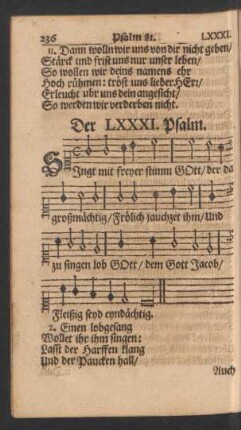 236 Psalm 81. LXXXI.
11. Dann wolln wir uns von dir nicht gehen/
Stärck und frist uns nur unser leben/
So wollen wir deins namens ehr
Hoch rühmen: tröst uns lieber HErr/
Erleucht ubr uns dein angesicht/
So werden wir verderben nicht.
Der LXXXI. Psalm.
SIngt mit freyer stimm GOtt/ der da
großmächtig/ Frölich jauchzet ihm/ Und
zu singen lob GOtt/ dem Gott Jacob/
Fleißig seyd eyndächtig.
2. Einen lobgesang
Wollet ihr ihm singen:
Lasst der Harffen klang
Und der Paucken hall/
Auch